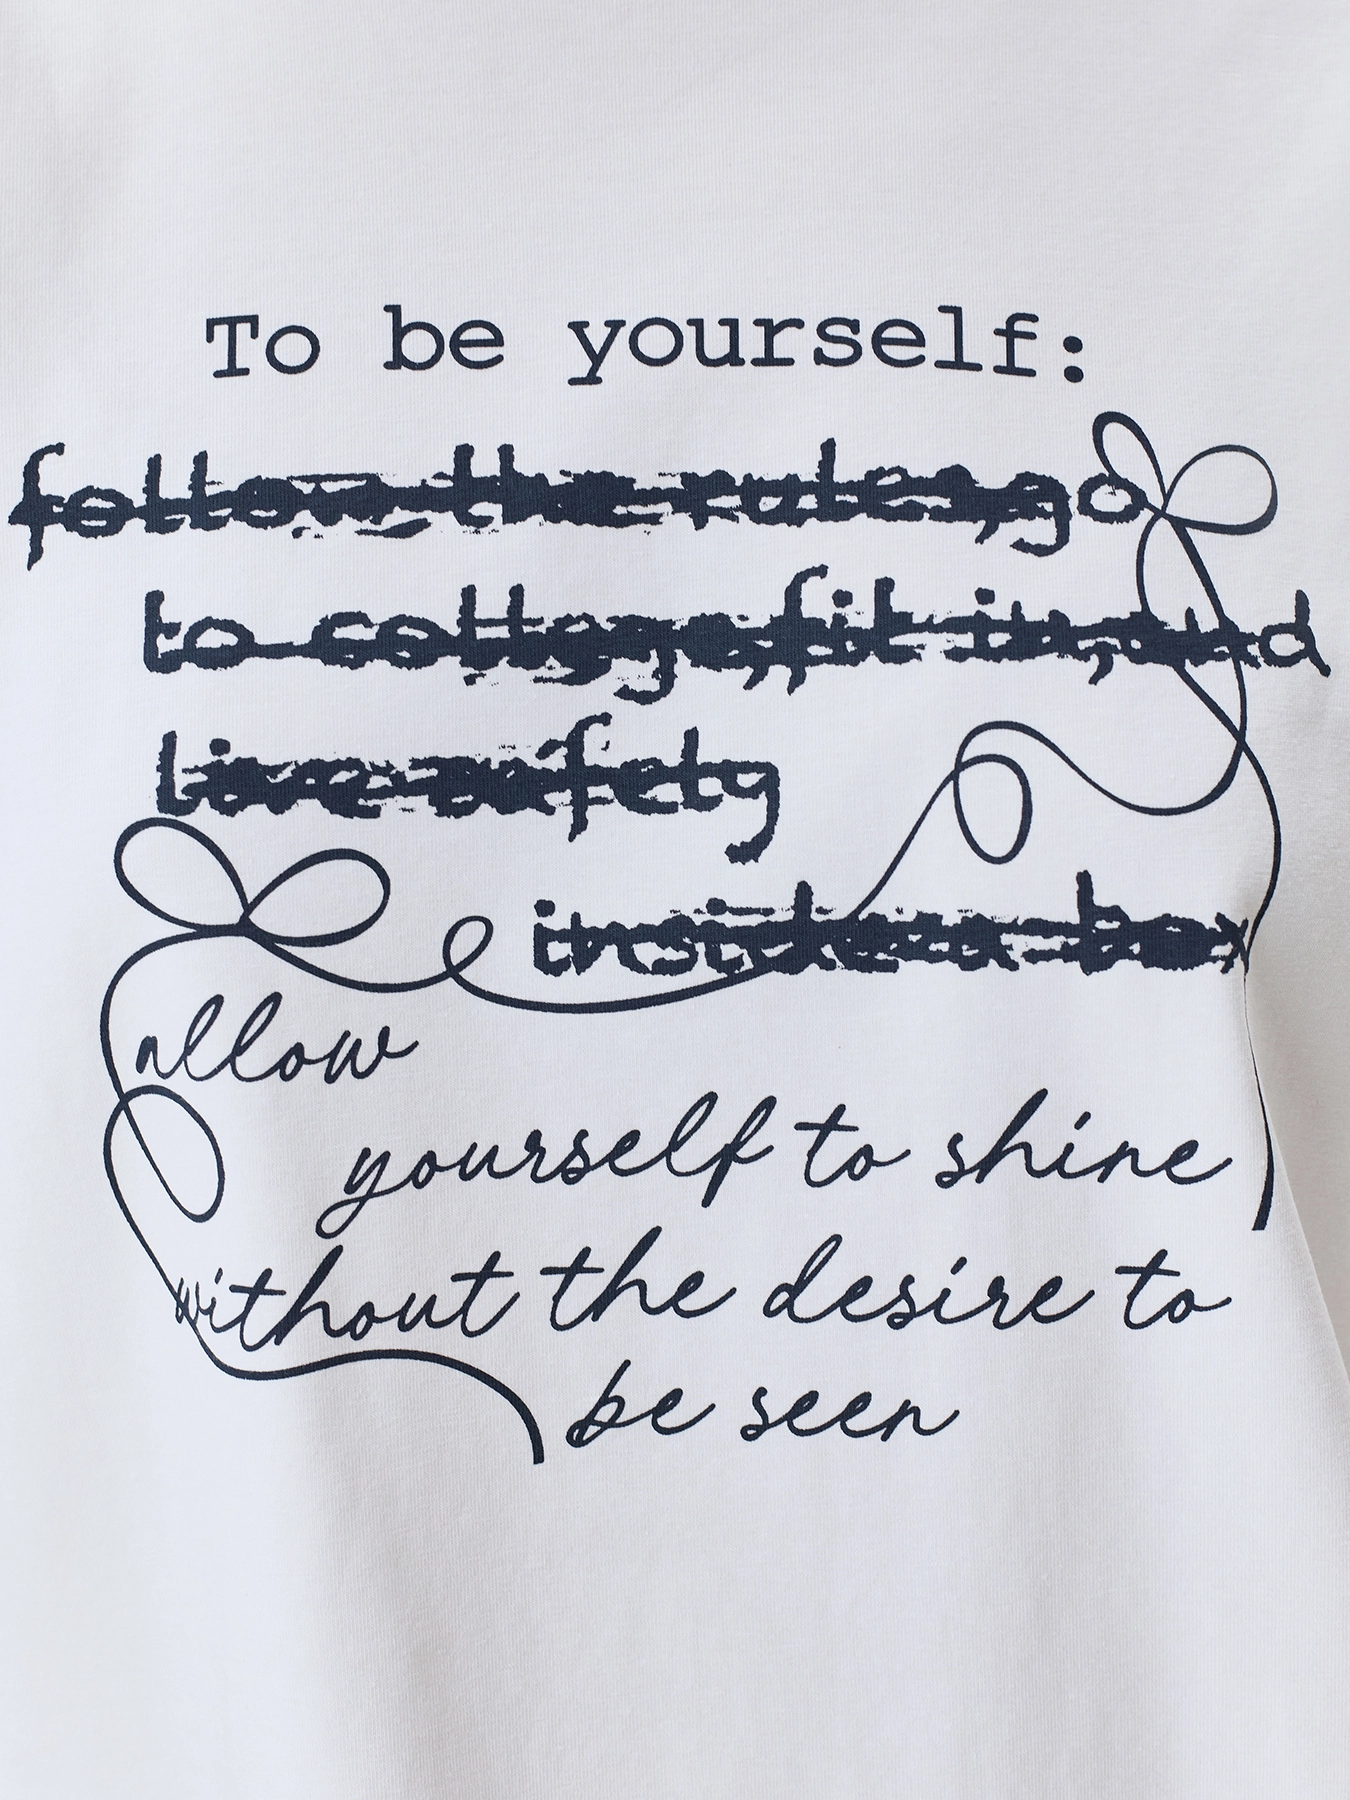 To be yourself:
follow the rules, go
to college, fit in, and
live safely
inside a box
allow
yourself to shine
without the desire to
be seen